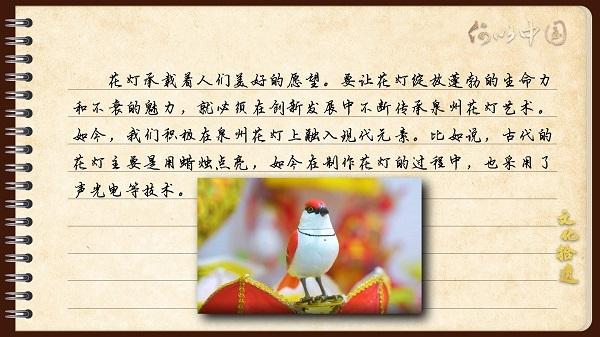 何以中国
花灯承载着人们美好的愿望。要让花灯绽放蓬勃的生命力
和不衰的魅力，就必须在创新发展中不断传承泉州花灯艺术。
如今，我们积极在泉州花灯上融入现代元素。比如说，古代的
花灯主要是用蜡烛点亮，如今在制作花灯的过程中，也采用了
声光电等技术。
文化拾遗